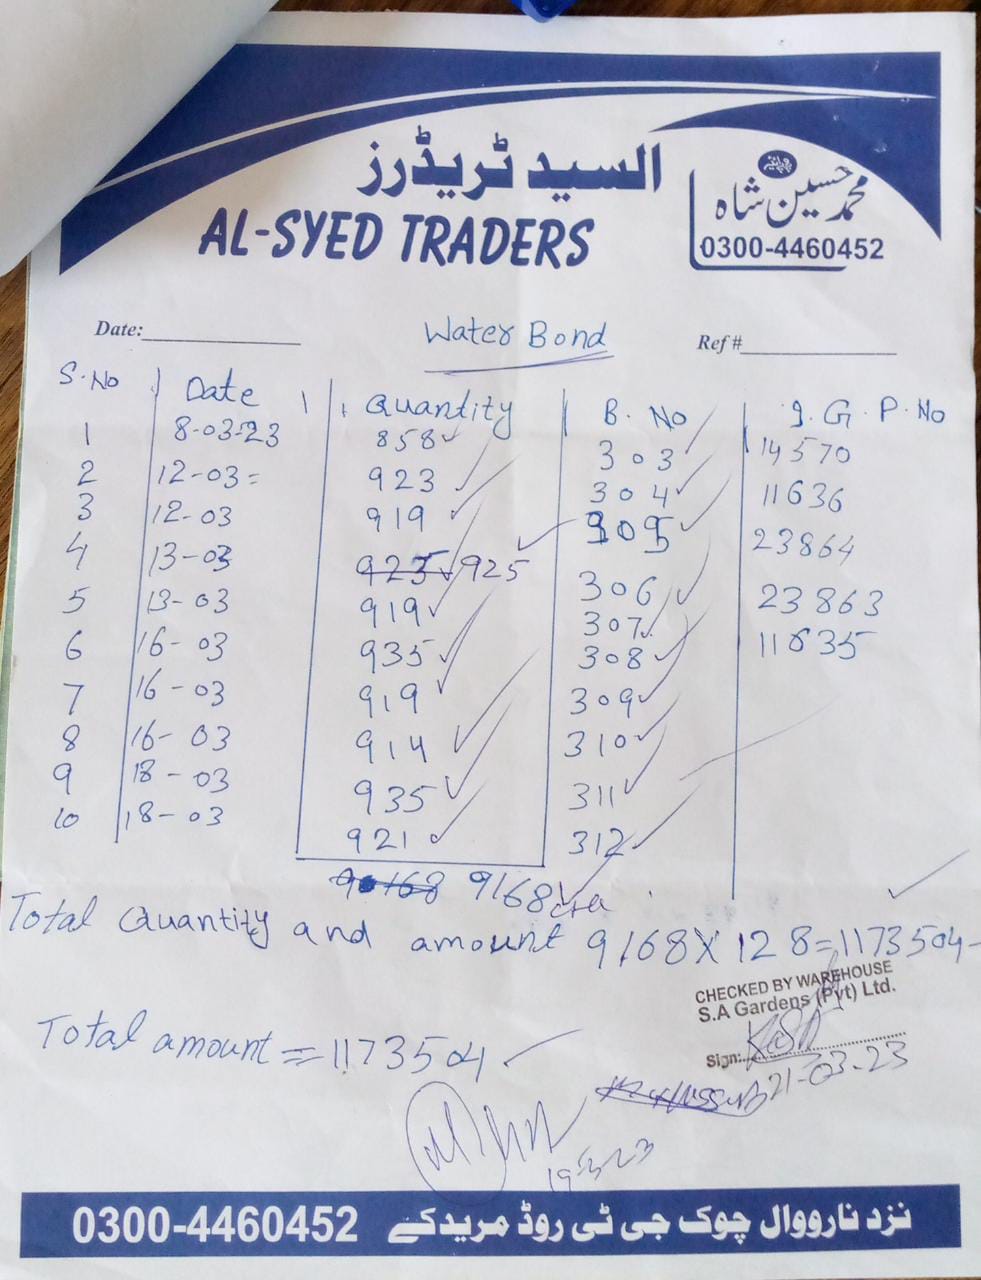 السید ٹریڈرز
AL-SYED TRADERS
محمد حسین شاہ
0300-4460452
Date:
Water Bond
Ref #
S.No Date Quantity B. No I.G.P.No
1 8-03-23 858 303 14570
2 12-03= 923 304 11636
3 12-03 919 305 23864
4 13-03 923 925 306 23863
5 13-03 919 307 11635
6 16-03 935 308
7 16-03 919 309
8 16-03 914 310
9 18-03 935 311
10 18-03 921 312
9168
Total Quantity and amount 9168X128=1173504-
CHECKED BY WAREHOUSE
S.A Gardens (Pvt) Ltd.
Total amount = 1173504
Sign:
21-03-23
19-3-23
0300-4460452 نزد نارووال چوک جی ٹی روڈ مریدکے